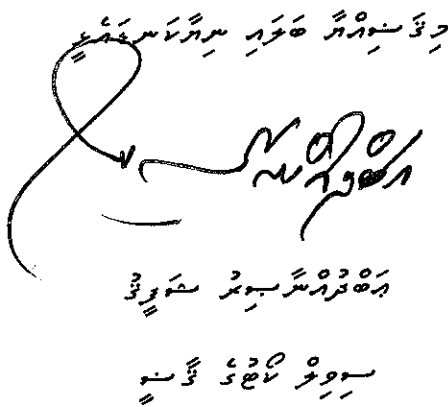 މިޤަޟިއްޔާ ބަލައި ނިޔާކަނޑައެޅީ
ޢަބްދުއްނާޞިރު ޝަފީޤު
ސިވިލް ކޯޓުގެ ޤާޟީ